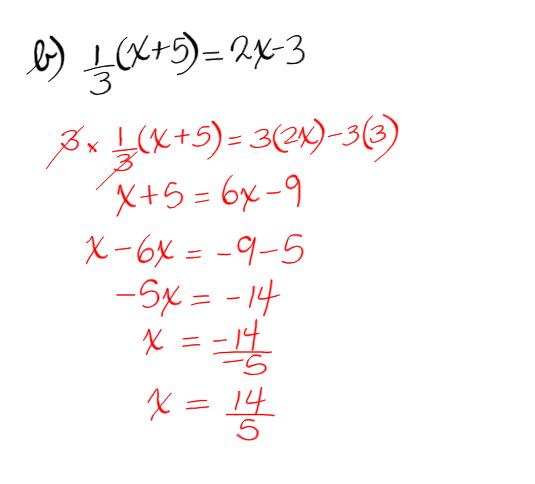 b) 1/3 (x+5) = 2x-3
3 × 1/3 (x+5) = 3(2x)-3(3)
x+5 = 6x-9
x-6x = -9-5
-5x = -14
x = -14/-5
x = 14/5